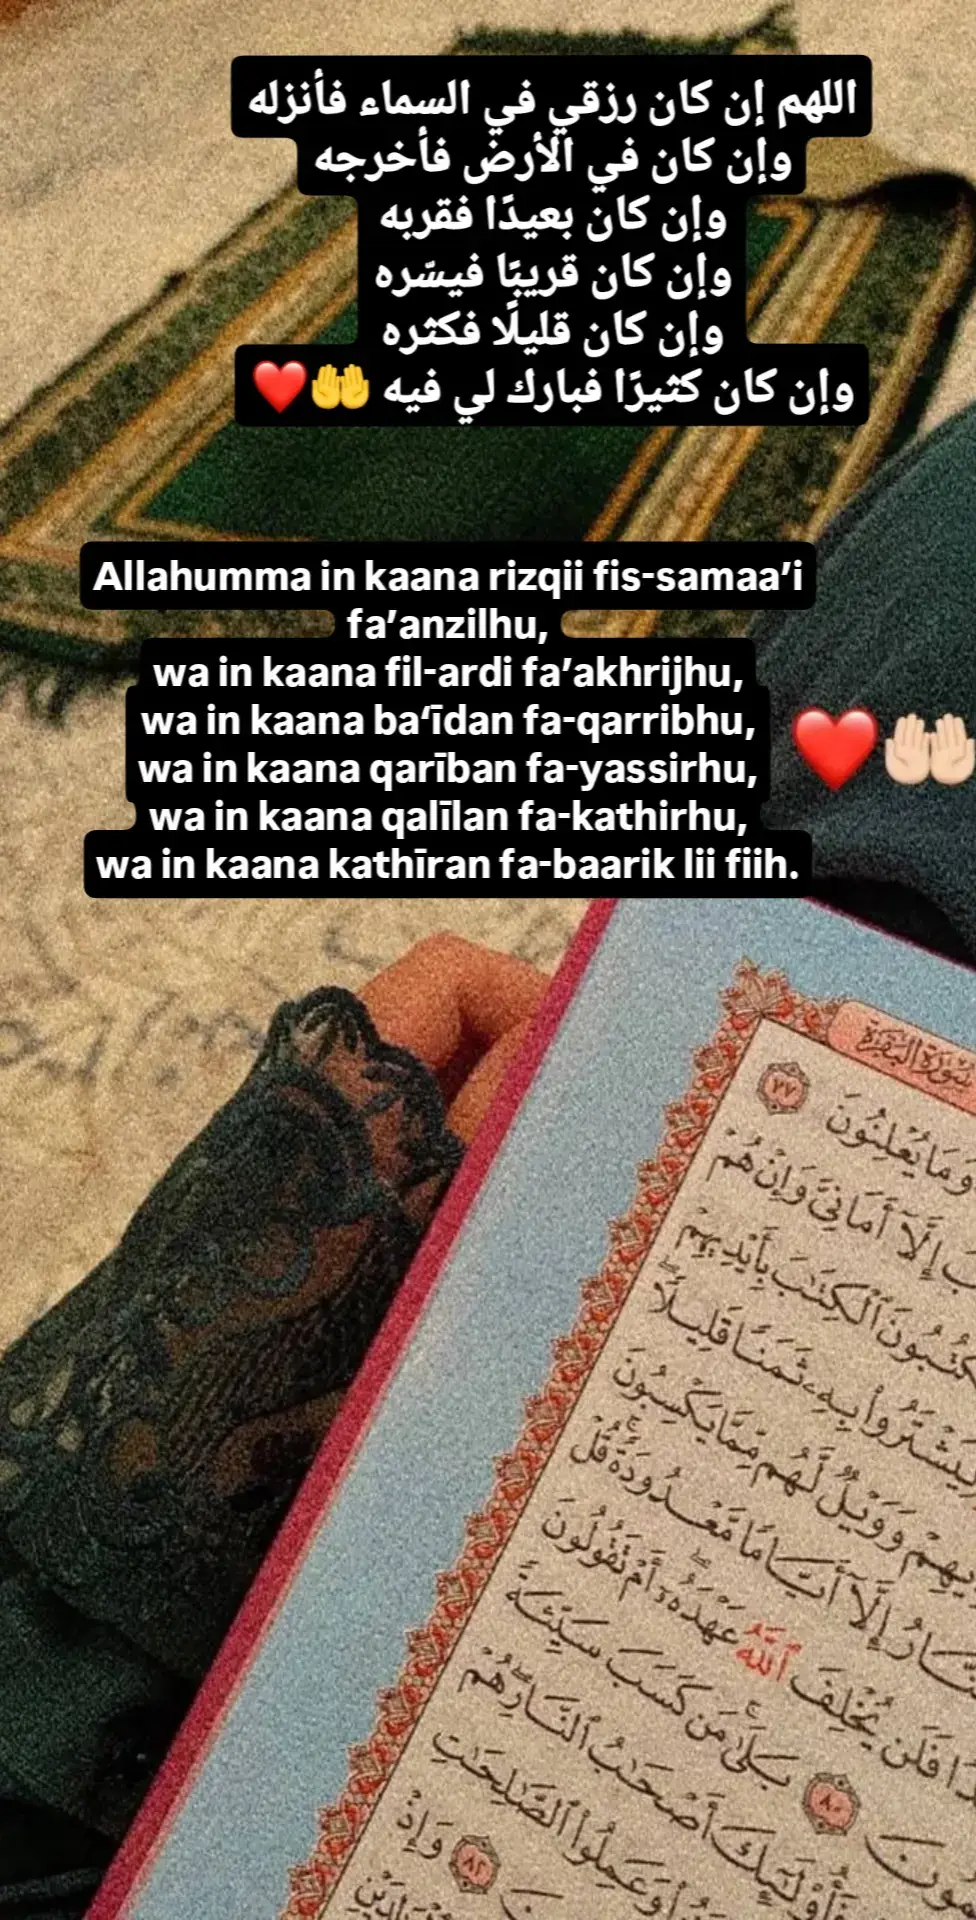 اللهم إن كان رزقي في السماء فأنزله
وإن كان في الأرض فأخرجه
وإن كان بعيدًا فقربه
وإن كان قريبًا فيسّره
وإن كان قليلًا فكثره
وإن كان كثيرًا فبارك لي فيه 🤲❤️
Allahumma in kaana rizqii fis-samaa’i
fa’anzilhu,
wa in kaana fil-ardi fa’akhrijhu,
wa in kaana ba‘īdan fa-qarribhu,
wa in kaana qarīban fa-yassirhu,
wa in kaana qalīlan fa-kathirhu,
wa in kaana kathīran fa-baarik lii fiih.
❤️🤲🏻
سُورَةُ البَقَرَةِ
وَمَا يُعْلِنُونَ ٧٧
إِلَّآ أَمَانِيَّ وَإِنْ هُمْ
ٱلْكِتَٰبَ بِأَيْدِيهِمْ
لِيَشْتَرُوا۟ بِهِۦ ثَمَنًا قَلِيلًا
وَوَيْلٌ لَّهُم مِّمَّا يَكْسِبُونَ
إِلَّآ أَيَّامًا مَّعْدُودَةً قُلْ
فَلَن يُخْلِفَ ٱللَّهُ عَهْدَهُۥٓ أَمْ تَقُولُونَ
٨٠ بَلَىٰ مَن كَسَبَ سَيِّئَةً
أَصْحَٰبُ ٱلنَّارِ هُمْ
وَعَمِلُوا۟ ٱلصَّٰلِحَٰتِ
٨٢ وَإِذْ